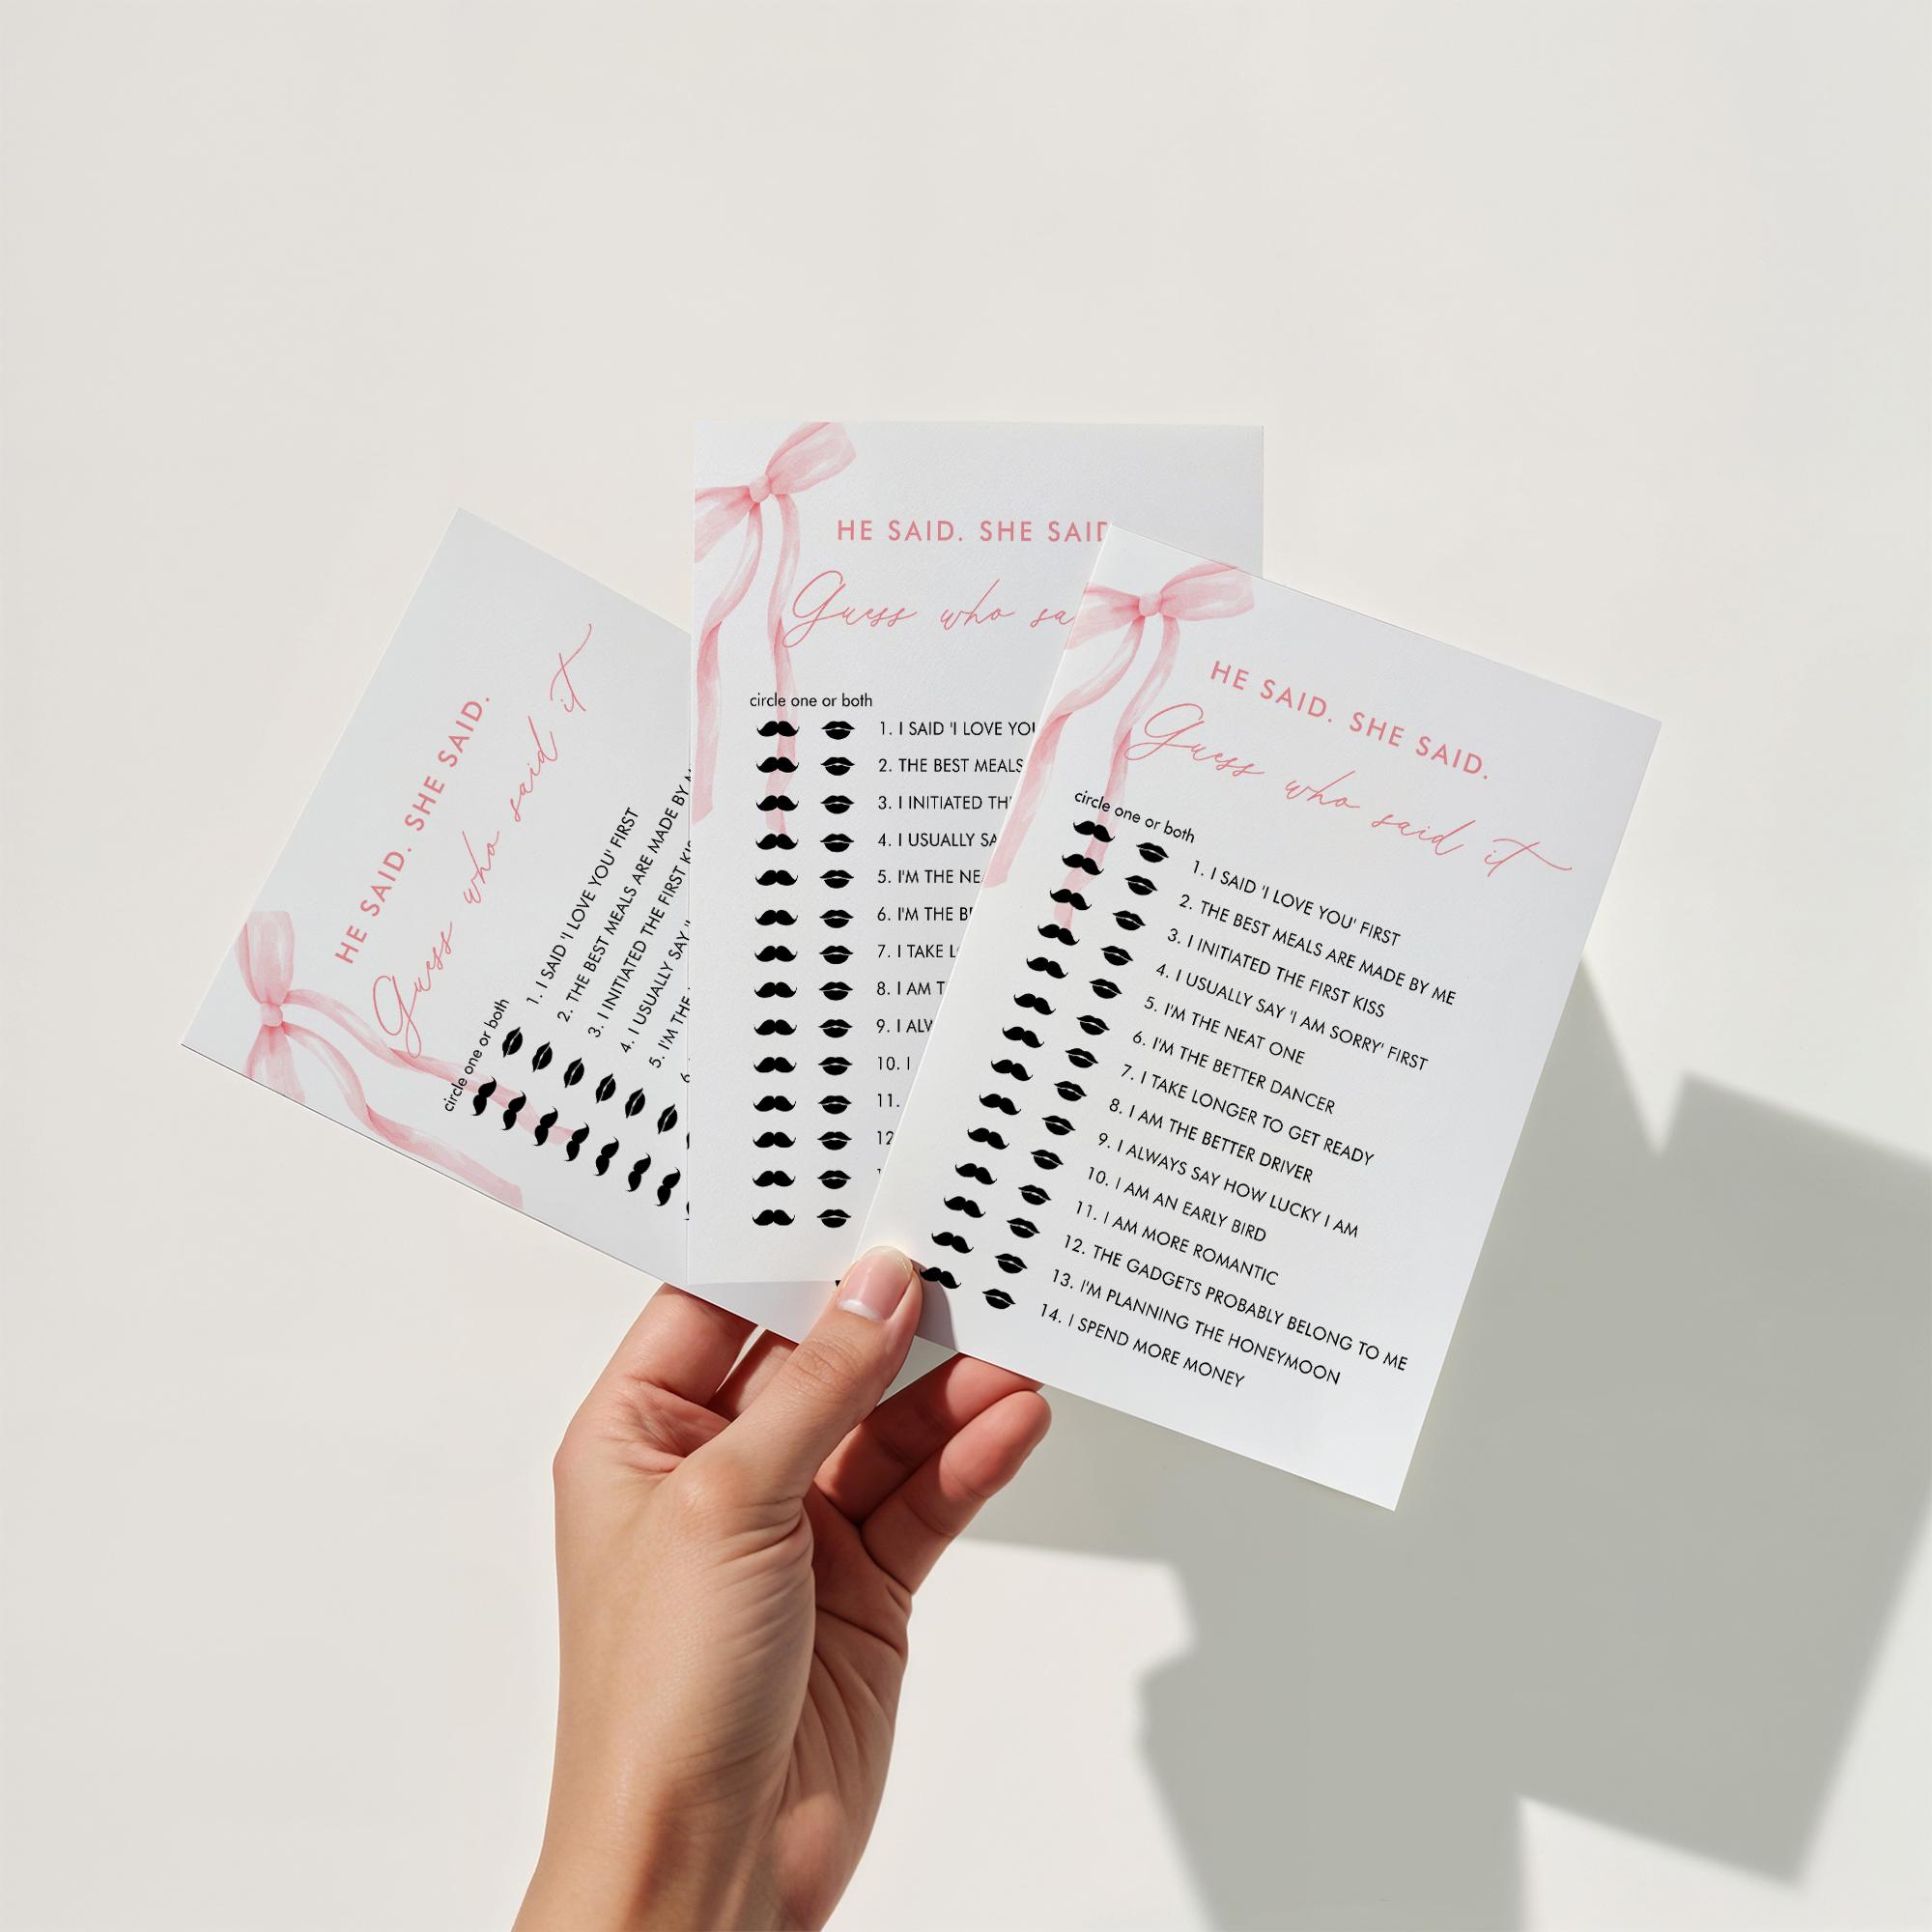 HE SAID. SHE SAID.
Guess who said it
circle one or both
1. I SAID 'I LOVE YOU' FIRST
2. THE BEST MEALS ARE MADE BY
3. I INITIATED THE FIRST
4. I USUALLY SAY
5. I'M THE
6.
HE SAID. SHE SAID
Guess who sa
circle one or both
1. I SAID 'I LOVE YOU
2. THE BEST MEALS
3. I INITIATED TH
4. I USUALLY SA
5. I'M THE NE
6. I'M THE B
7. I TAKE L
8. I AM T
9. I ALW
10. I
11.
12
HE SAID. SHE SAID.
Guess who said it
circle one or both
1. I SAID 'I LOVE YOU' FIRST
2. THE BEST MEALS ARE MADE BY ME
3. I INITIATED THE FIRST KISS
4. I USUALLY SAY 'I AM SORRY' FIRST
5. I'M THE NEAT ONE
6. I'M THE BETTER DANCER
7. I TAKE LONGER TO GET READY
8. I AM THE BETTER DRIVER
9. I ALWAYS SAY HOW LUCKY I AM
10. I AM AN EARLY BIRD
11. I AM MORE ROMANTIC
12. THE GADGETS PROBABLY BELONG TO ME
13. I'M PLANNING THE HONEYMOON
14. I SPEND MORE MONEY